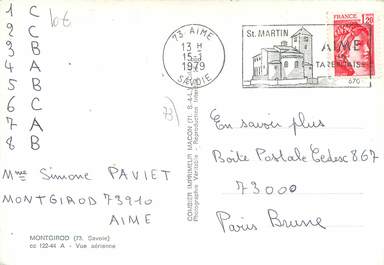 1 C
2 C
3 B
4 A
5 B
6 C
7 A
8 B
Mme Simone PAVIET
MONTGIROD 73910
AIME
MONTGIROD (73, Savoie)
cc 122-44 A - Vue aérienne
COMBIER IMPRIMEUR MACON (71, S.-&-L.)
73 AIME
13 H
15-1
1979
SAVOIE
St. MARTIN
AIME
TARENTAISE
670
FRANCE
1,20
73
En savoir plus
Boite Postale Cedex 867
73000
Paris Brune